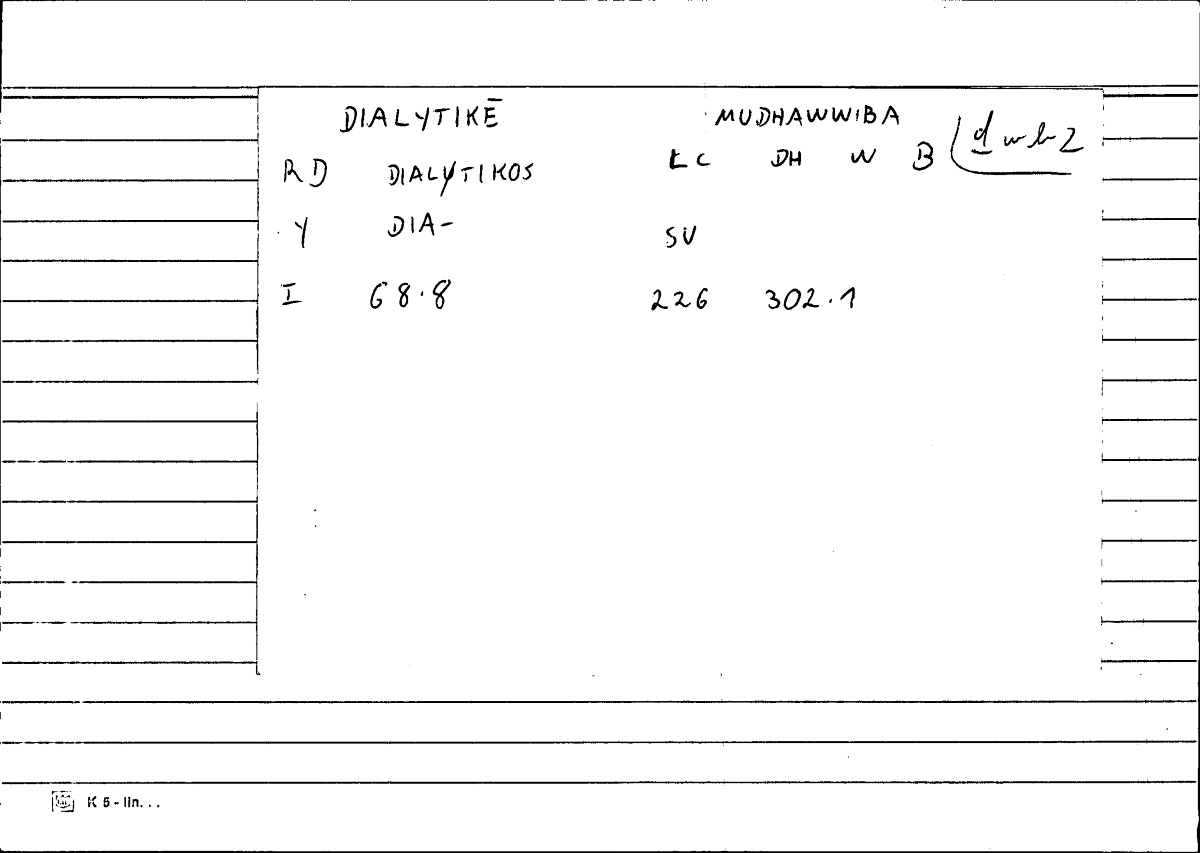 DIALYTIKĒ MUDHAWWIBA
RD DIALYTIKOS LC DH W B d̲wb2
Y DIA- SV
I 68.8 226 302.1
K 5 - lin. . .